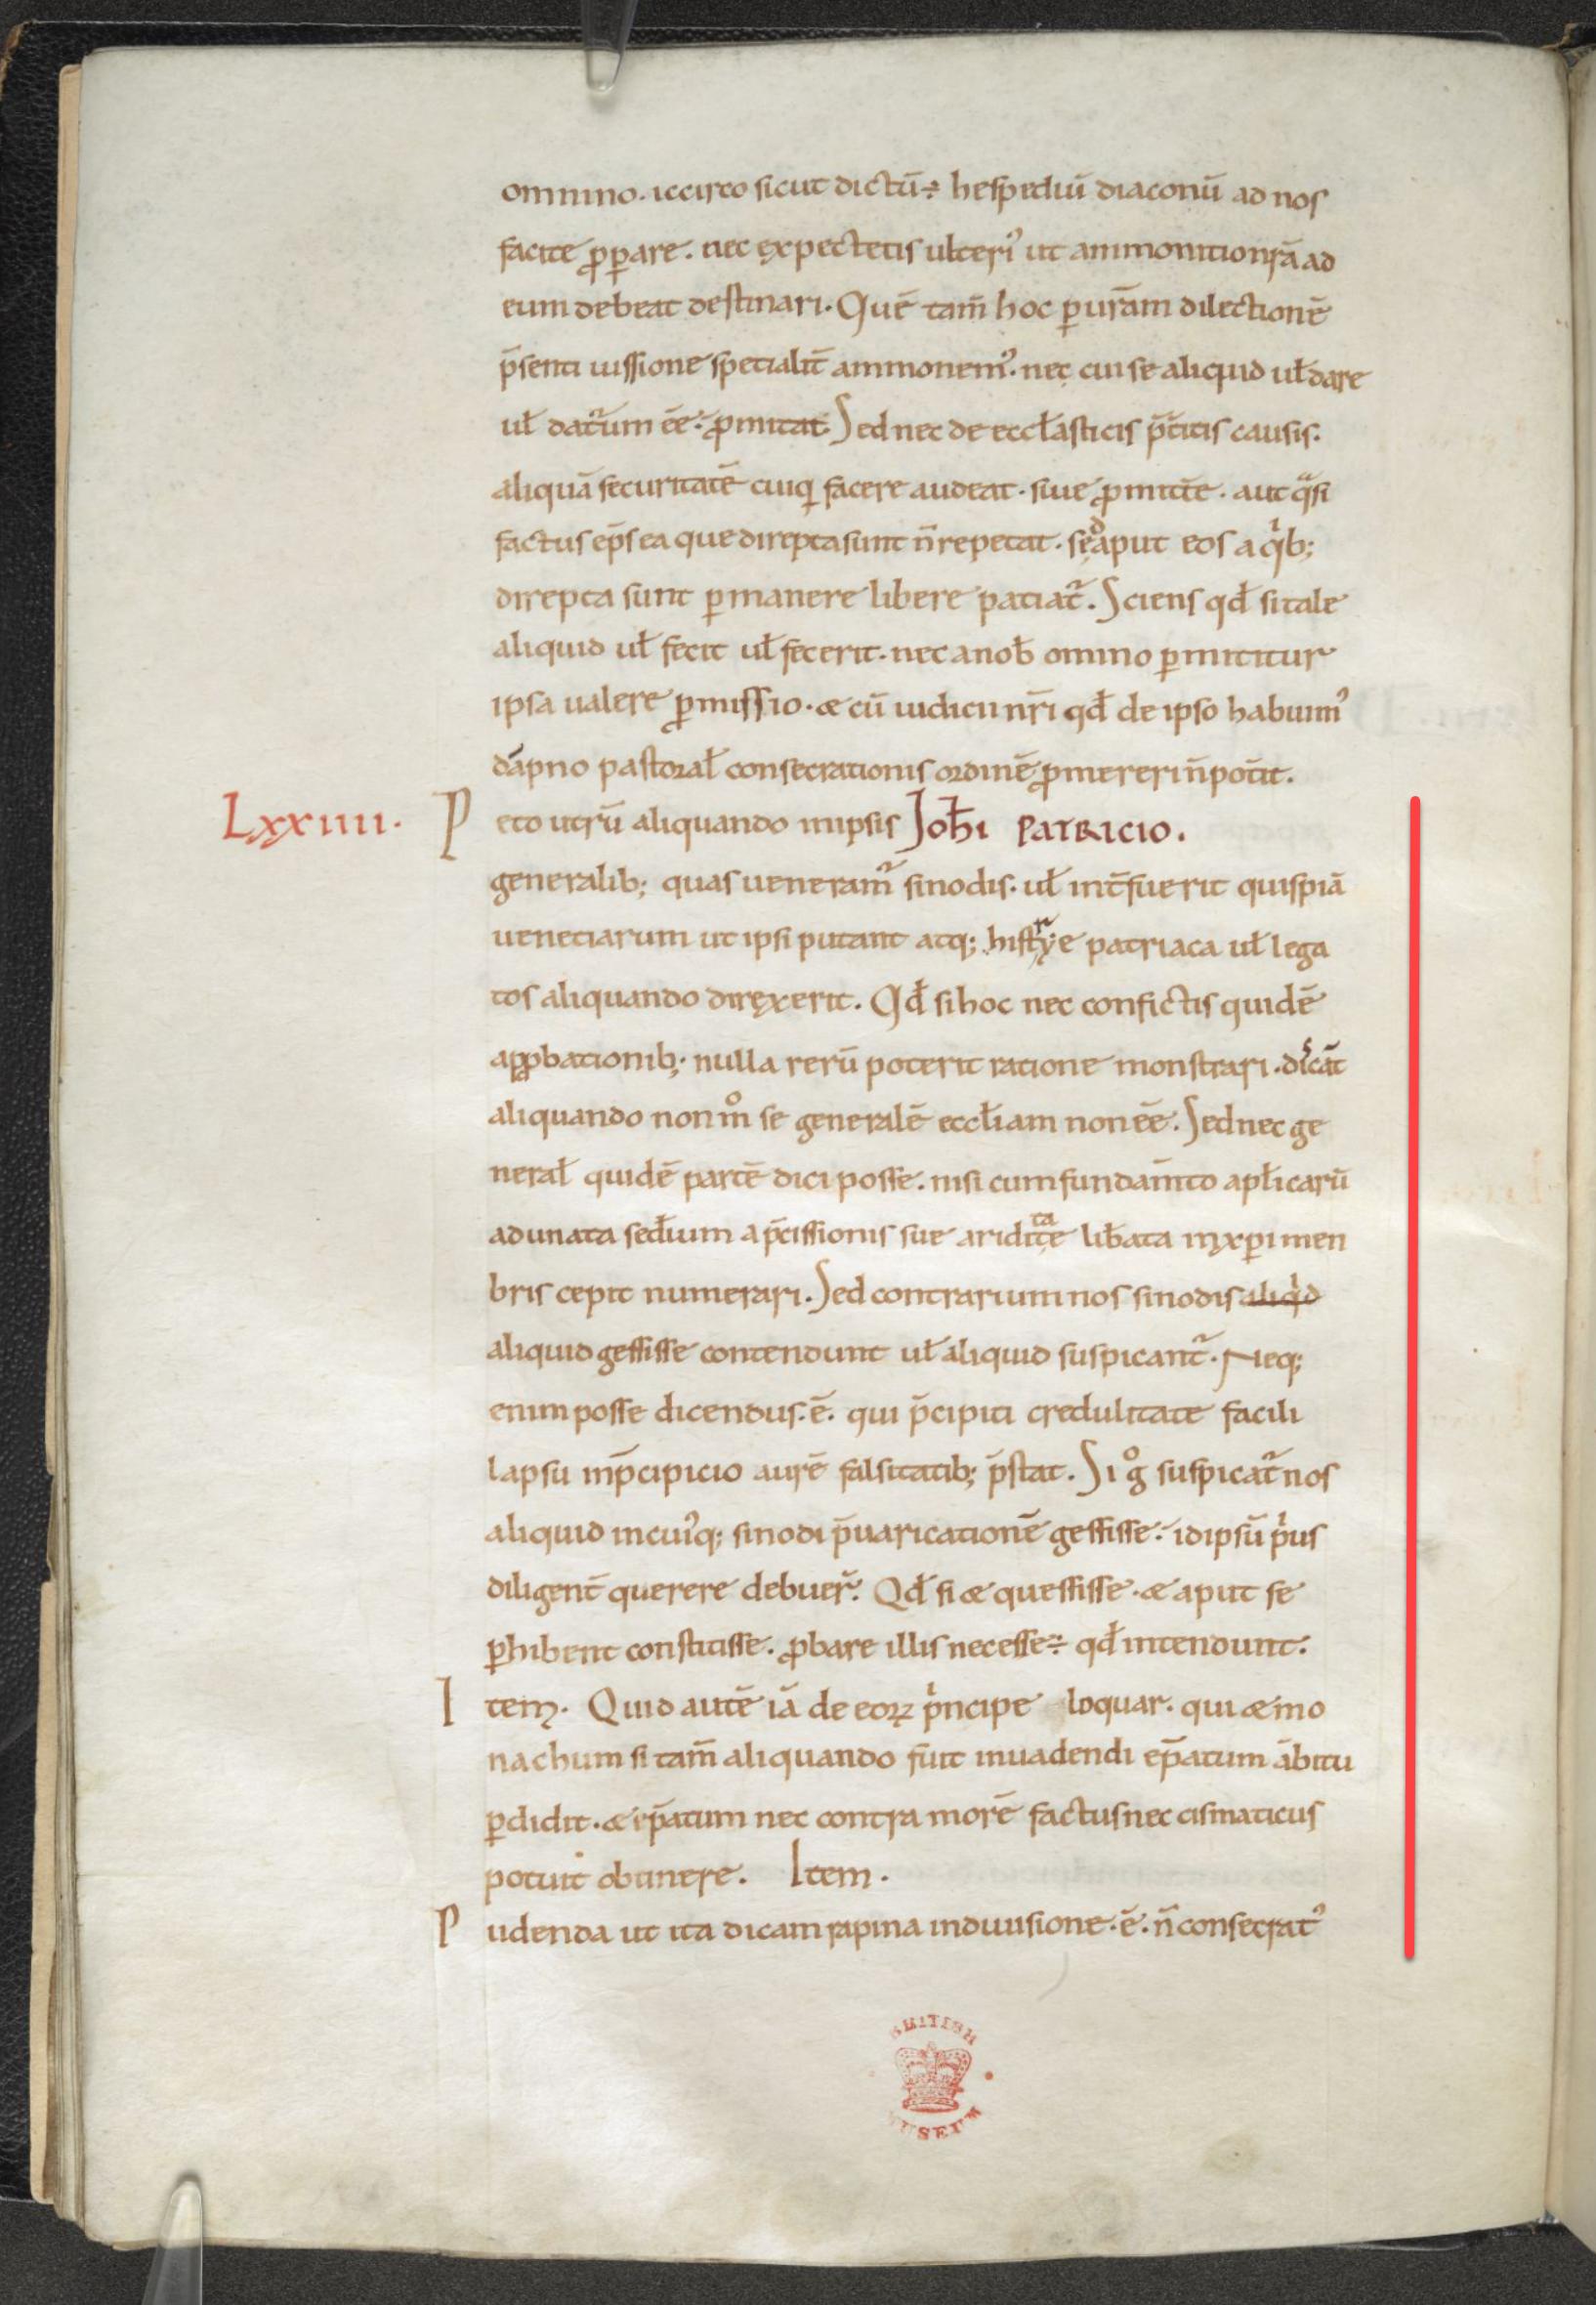 omnino. iccirco sicut dictū÷ hespediū diaconū ad nos
facite ꝓꝑare. nec ęxpectetis ulteriꝰ ut ammonitio nr̄a ad
eum debeat destinari. Quē tam̄ hoc ꝑ ur̄am dilectionē
p̄senti iussione specialit̄ ammonemꝰ. nec cui se aliquid uł dare
uł datur̄um ēe ꝓmittat. Sed nec de eccłasticis p̄t̄itis causis.
aliquā securitatē cuiq facere audeat. siue ꝓmitt̄e. aut qͣsi
factus ep̄s ea que direpta sunt n̄ repetat. sęd aput eos a qⁱb;
direpta sunt ꝑmanere libere patiat᷑. Sciens qđ si tale
aliquid uł fecit uł fecerit. nec a nob̄ omino ꝑmittitur
ipsa ualere ꝓmissio. & cū iudicii nr̄i qđ de ipso habuimꝰ
dāpno pastorał consecrationis ordinē ꝓmereri n̄ pot̄it.
Lxxiiii. Peto utrū aliquando in ipsis Joħi PATRICIO.
generalib; quas ueneram᷑ sinodis. uł int̄fuerit quispiā
uenetiarum ut ipsi putant atq; histrye patriaca uł lega
tos aliquando diręxerit. Qđ si hoc nec confictis quidē
apꝓbationib; nulla rerū poterit ratione monstrari. discāt
aliquando non mͦ se generalē eccłiam non ēe. Sed nec ge
nerał quidē partē dici posse. nisi cum fundam̄to apłicarū
adunata sedium a p̄cissionis sue ariditate lib̄ata in xp̄i men
bris cepit numerari. Sed contrarium nos sinodis aliqⁱd
aliquid gessisse contendunt uł aliquid suspicant᷑. Neq;
enim posse dicendus .ē. qui p̄cipiti credulitate facili
lapsu in p̄cipicio aurē falsitatib; p̄stat. Si gͦ suspicat᷑ nos
aliquid in cuiꝰq; sinodi p̄uaricationē gessisse. id ipsū pⁱus
diligent̄ querere debuer̄. Qđ si & quessisse. & aput se
ꝑhibent constitisse. ꝓbare illis necesse÷ qđ intendunt.
Item. Quid autē iā de eoꝝ pⁱncipe loquar. qui & mo
nachum si tam̄ aliquando fuit inuadendi ep̄atum ābitu
ꝑdidit. & ep̄atum nec contra morē factus nec cismaticus
potuit obtinere. Item.
Pudenda ut ita dicam rapina in diuisione .ē. n̄ consecratꝰ
BRITISH
MUSEUM